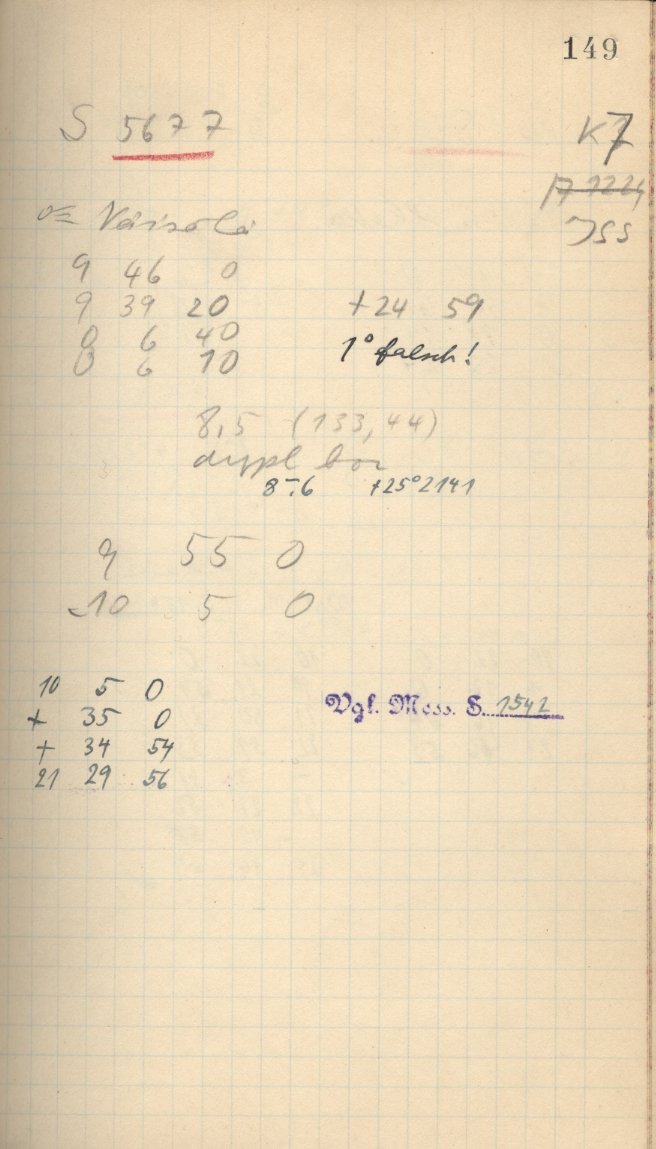 149
S 5677
K7
17 1224
JSS
Väisälä
9 46 0
9 39 20 +24 59
0 6 40 1° falsch!
0 6 10
8,5 (133,44)
dypl
8.6 +25°2141
9 55 0
10 5 0
10 5 0
+ 35 0 Vgl. Mess. S. 1542
+ 34 54
21 29 56